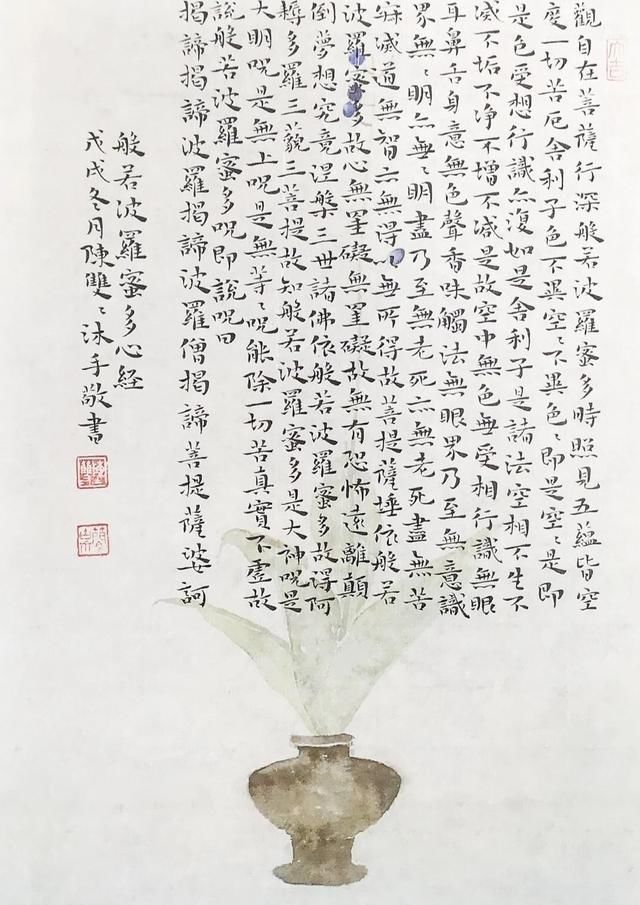 大吉
觀自在菩薩行深般若波羅蜜多時照見五蘊皆空
度一切苦厄舍利子色不異空〻不異色〻即是空〻是即
是色受想行識亦復如是舍利子是諸法空相不生不
滅不垢不净不增不减是故空中無色無受相行識無眼
耳鼻舌身意無色聲香味觸法無眼界乃至無意識
界無〻明亦無〻明盡乃至無老死亦無老死盡無苦
滅道無智亦無得以無所得故菩提薩埵依般若
波羅蜜多故心無罣礙無罣礙故無有恐怖遠離顛
倒夢想究竟涅槃三世諸佛依般若波羅蜜多故得阿
耨多羅三藐三菩提故知般若波羅蜜多是大神呪是
大明呪是無上呪是無等〻呪能除一切苦真實不虛故
說般若波羅蜜多呪即說呪曰
揭諦揭諦波羅揭諦波羅僧揭諦菩提薩婆訶
般若波羅蜜多心経
戊戌冬月陳雙〻沐手敬書